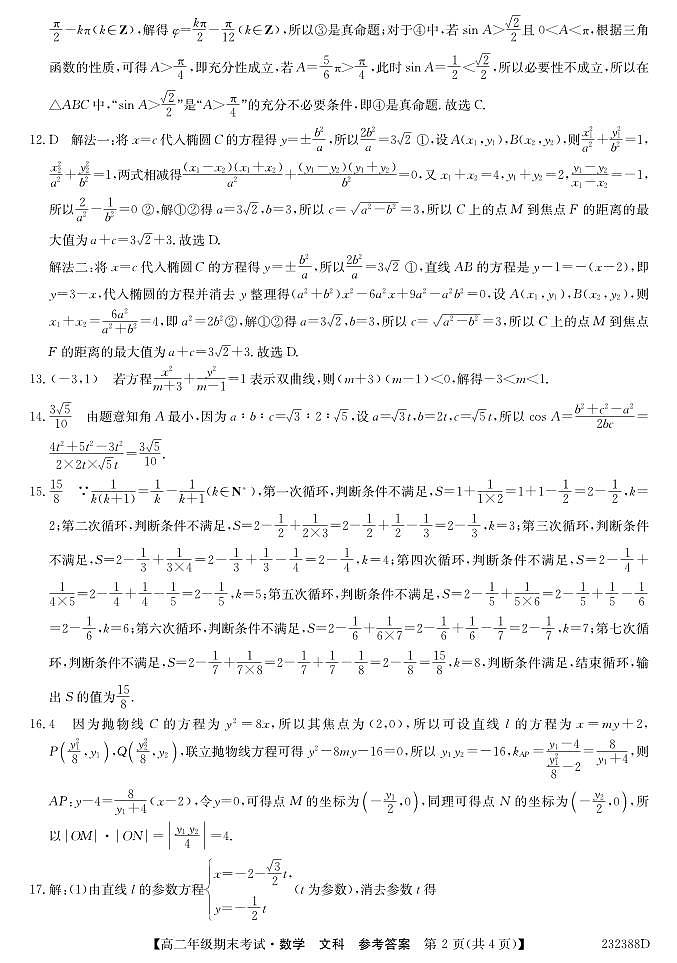 π/2-kπ(k∈Z),解得 φ=kπ/2-π/12(k∈Z),所以③是真命题;对于④中,若 sin A>√2/2且 0<A<π,根据三角
函数的性质,可得 A>π/4,即充分性成立,若A=5/6π>π/4,此时 sin A=1/2<√2/2,所以必要性不成立,所以在
△ABC 中,“sin A>√2/2”是“A>π/4”的充分不必要条件,即④是真命题.故选 C.
12. D 解法一:将 x=c 代入椭圆 C 的方程得 y=±b²/a,所以2b²/a=3√2 ①,设 A(x₁,y₁),B(x₂,y₂),则x₁²/a²+y₁²/b²=1,
x₂²/a²+y₂²/b²=1,两式相减得(x₁-x₂)(x₁+x₂)/a²+(y₁-y₂)(y₁+y₂)/b²=0,又 x₁+x₂=4,y₁+y₂=2,(y₁-y₂)/(x₁-x₂)=-1,
所以2/a²-1/b²=0 ②,解①②得 a=3√2,b=3,所以 c=√(a²-b²)=3,所以 C 上的点 M 到焦点 F 的距离的最
大值为 a+c=3√2+3.故选 D.
解法二:将 x=c 代入椭圆 C 的方程得 y=±b²/a,所以2b²/a=3√2 ①,直线 AB 的方程是 y-1=-(x-2),即
y=3-x,代入椭圆的方程并消去 y 整理得(a²+b²)x²-6a²x+9a²-a²b²=0,设 A(x₁,y₁),B(x₂,y₂),则
x₁+x₂=6a²/(a²+b²)=4,即 a²=2b²②,解①②得 a=3√2,b=3,所以 c=√(a²-b²)=3,所以 C 上的点 M 到焦点
F 的距离的最大值为 a+c=3√2+3.故选 D.
13. (-3,1) 若方程x²/(m+3)+y²/(m-1)=1 表示双曲线,则(m+3)(m-1)<0,解得-3<m<1.
14. 3√5/10 由题意知角 A 最小,因为 a∶b∶c=√3∶2∶√5,设 a=√3t,b=2t,c=√5t,所以 cos A=(b²+c²-a²)/2bc=
(4t²+5t²-3t²)/(2×2t×√5t)=3√5/10.
15. 15/8 ∵1/k(k+1)=1/k-1/(k+1)(k∈N*),第一次循环,判断条件不满足,S=1+1/(1×2)=1+1-1/2=2-1/2,k=
2;第二次循环,判断条件不满足,S=2-1/2+1/(2×3)=2-1/2+1/2-1/3=2-1/3,k=3;第三次循环,判断条件
不满足,S=2-1/3+1/(3×4)=2-1/3+1/3-1/4=2-1/4,k=4;第四次循环,判断条件不满足,S=2-1/4+
1/(4×5)=2-1/4+1/4-1/5=2-1/5,k=5;第五次循环,判断条件不满足,S=2-1/5+1/(5×6)=2-1/5+1/5-1/6
=2-1/6,k=6;第六次循环,判断条件不满足,S=2-1/6+1/(6×7)=2-1/6+1/6-1/7=2-1/7,k=7;第七次循
环,判断条件不满足,S=2-1/7+1/(7×8)=2-1/7+1/7-1/8=2-1/8=15/8,k=8,判断条件满足,结束循环,输
出 S 的值为15/8.
16. 4 因为抛物线 C 的方程为 y²=8x,所以其焦点为(2,0),所以可设直线 l 的方程为 x=my+2,
P(y₁²/8,y₁),Q(y₂²/8,y₂),联立抛物线方程可得 y²-8my-16=0,所以 y₁y₂=-16,k_AP=(y₁-4)/(y₁²/8-2)=8/(y₁+4),则
AP:y-4=8/(y₁+4)(x-2),令y=0,可得点 M 的坐标为(-y₁/2,0),同理可得点 N 的坐标为(-y₂/2,0),所
以|OM|·|ON|=|y₁y₂/4|=4.
17. 解:(1)由直线 l 的参数方程{x=-2-√3/2t, y=-1/2t (t 为参数),消去参数 t 得
【高二年级期末考试·数学 文科 参考答案 第 2 页(共 4 页)】 232388D